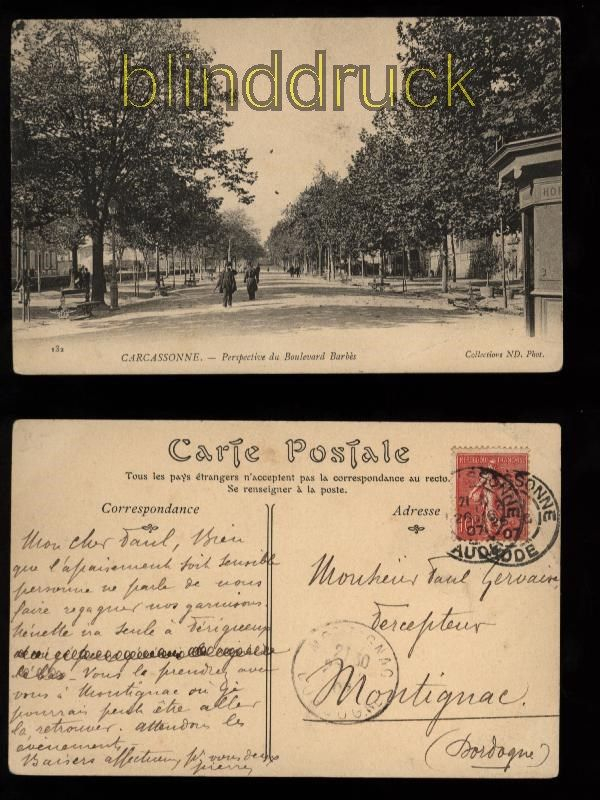 blinddruck
HOR
132
CARCASSONNE. — Perspective du Boulevard Barbès
Collections ND. Phot.
Carte Postale
Tous les pays étrangers n'acceptent pas la correspondance au recto.
Se renseigner à la poste.
Correspondance
Adresse
REPUBLIQUE FRANÇAISE
CARCASSONNE
AUDE
Mon cher Paul, Bien
que l'apaisement soit sensible
personne ne parle de nous
faire regagner nos garnisons.
va seule à Périgueux
là bas. Vous la prendrez avec
vous à Montignac ou je
pourrais peut être aller
la retrouver. attendons les
évènements.
Baisers affectueux pr vous deux
Pierre
Monsieur Paul Gervaise
Percepteur
Montignac.
(Dordogne)
MONTIGNAC
21 10